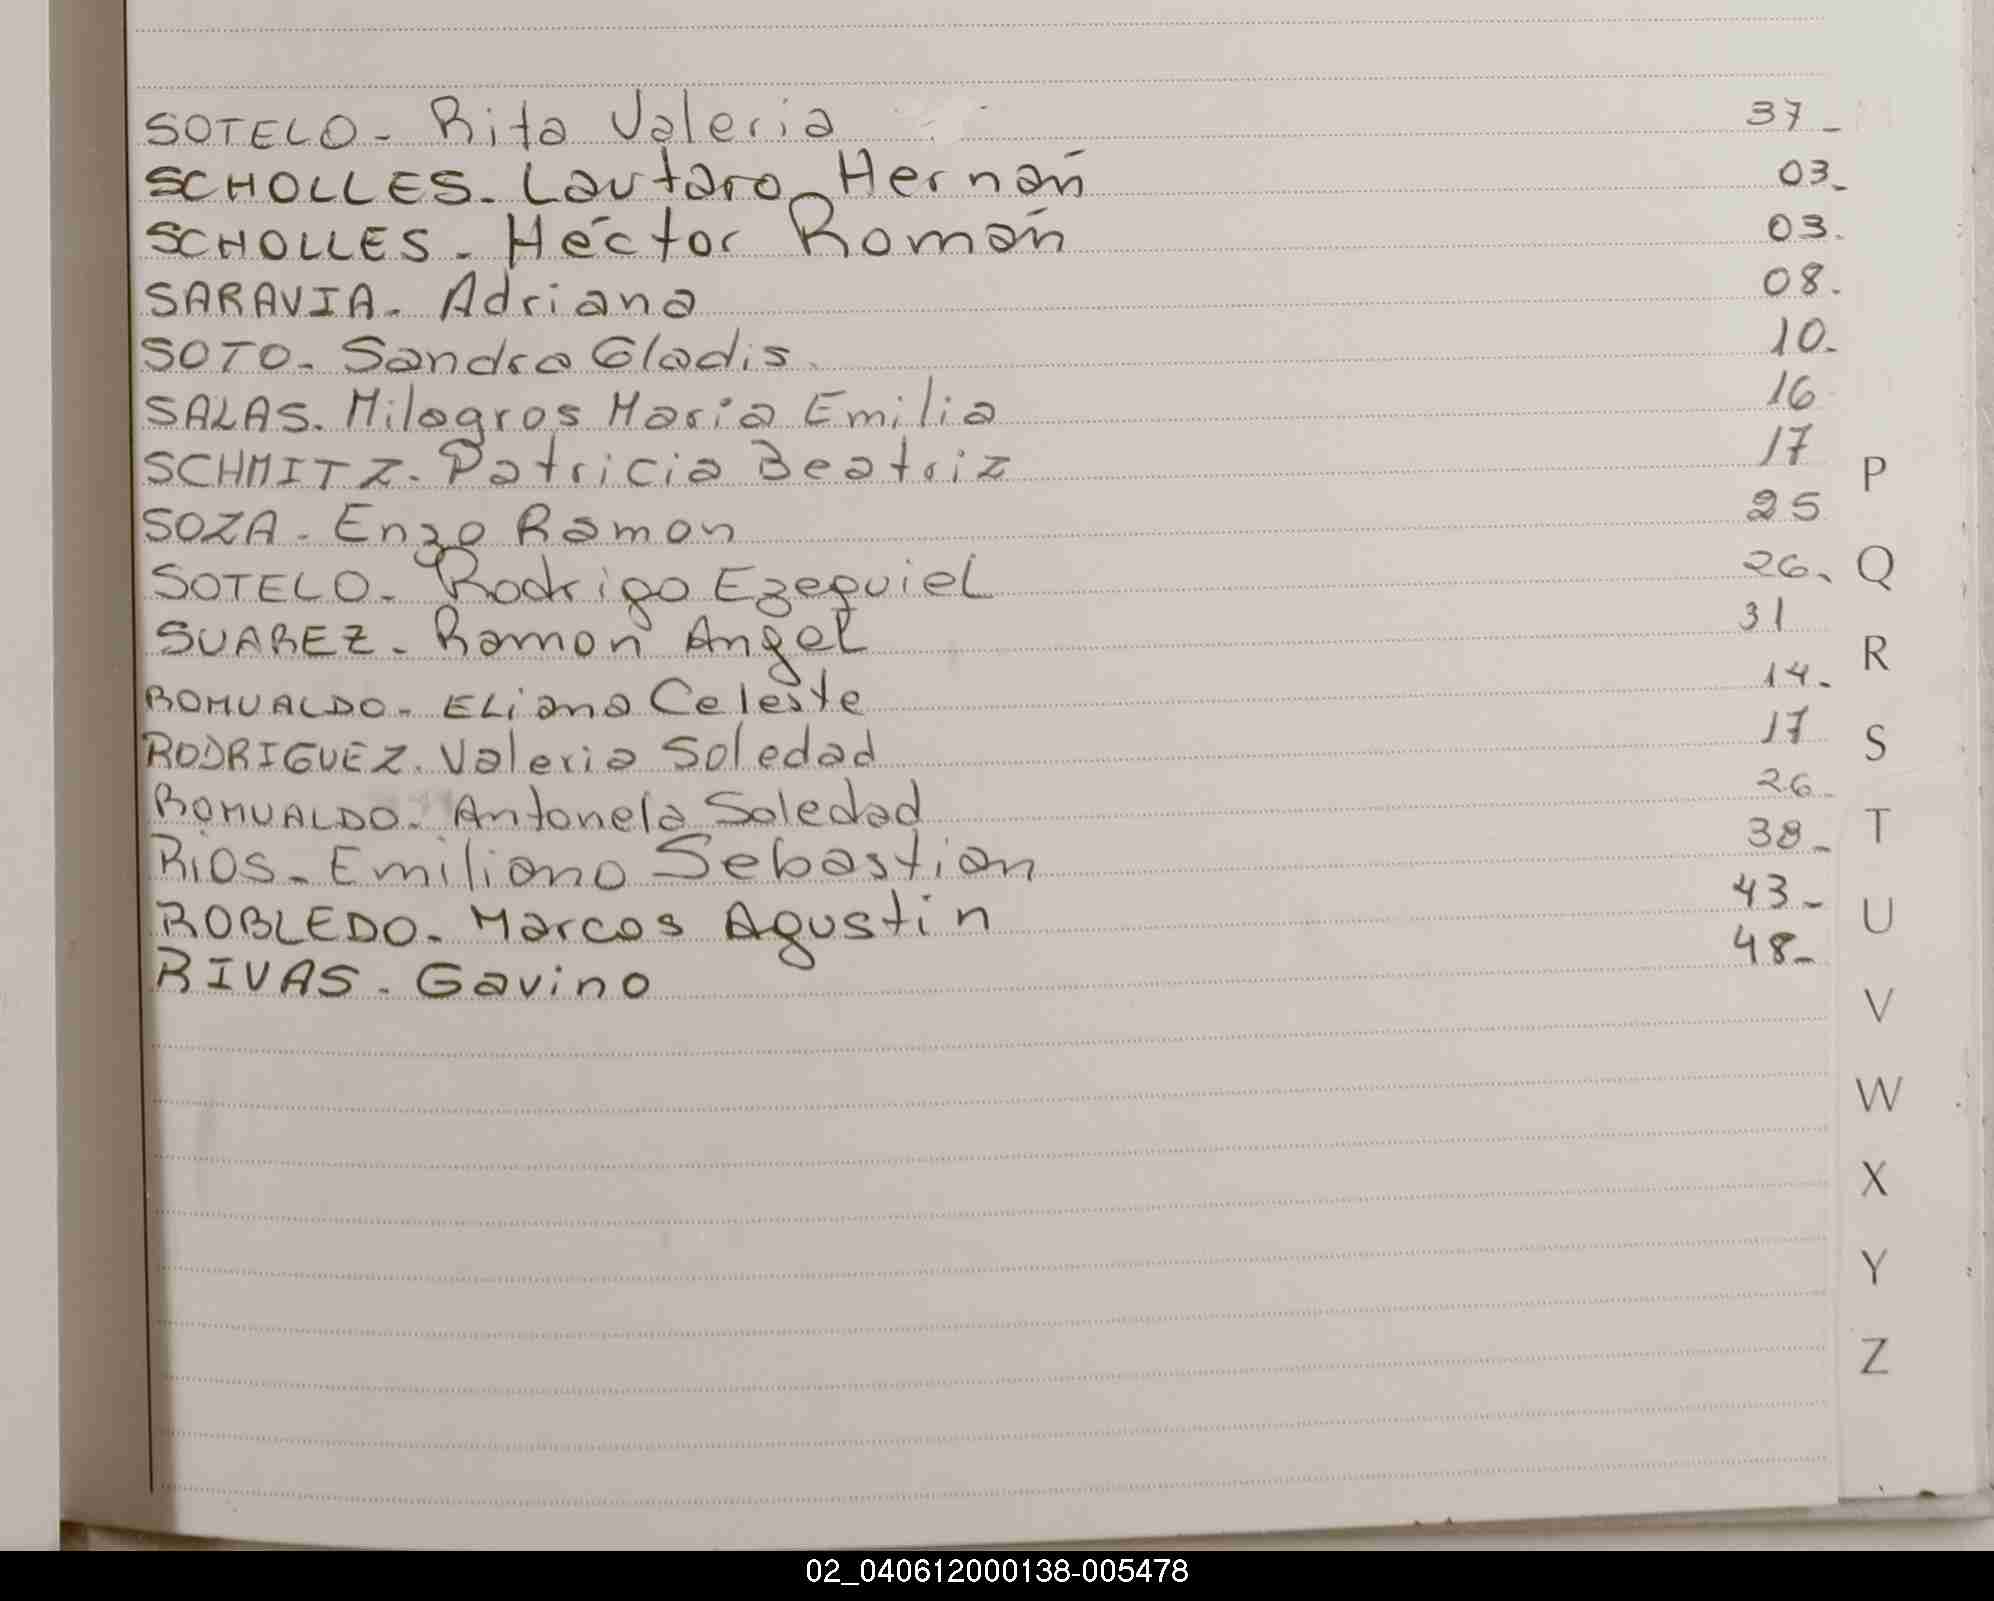 SOTELO - Rita Valeria 37-
SCHOLLES - Lautaro Hernán 03-
SCHOLLES - Héctor Román 03.
SARAVIA - Adriana 08.
SOTO - Sandra Gladis. 10-
SALAS. Milagros Maria Emilia 16
SCHMITZ - Patricia Beatriz 17
SOZA - Enzo Ramon 25
SOTELO - Rodrigo Ezequiel 26-
SUAREZ - Ramon Angel 31
ROMUALDO - ELiana Celeste 14-
RODRIGUEZ. Valeria Soledad 17
ROMUALDO - Antonela Soledad 26-
RIOS - Emiliano Sebastian 38-
ROBLEDO - Marcos Agustin 43-
RIVAS - Gavino 48-
P
Q
R
S
T
U
V
W
X
Y
Z
02_040612000138-005478